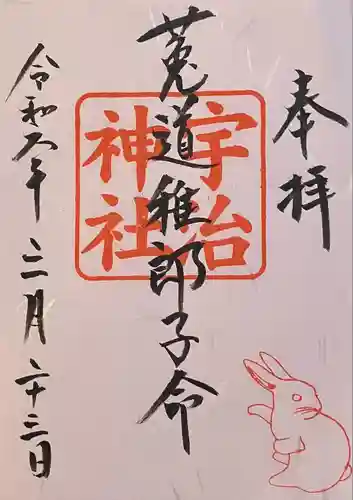 奉拝
宇治
神社
菟道稚郎子命
令和六年 三月 二十三日